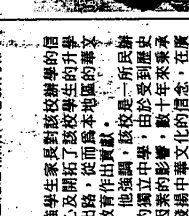 強學生家長對該校辦學的信
心及開拓了該校學生的升學
出路，從而為本地區的華文
教育作出貢獻。
他強調，該校是一所民辦
的獨立中學，由於受到歷史
因素的影響，數十年來秉承
揚中華文化的信念，在廣